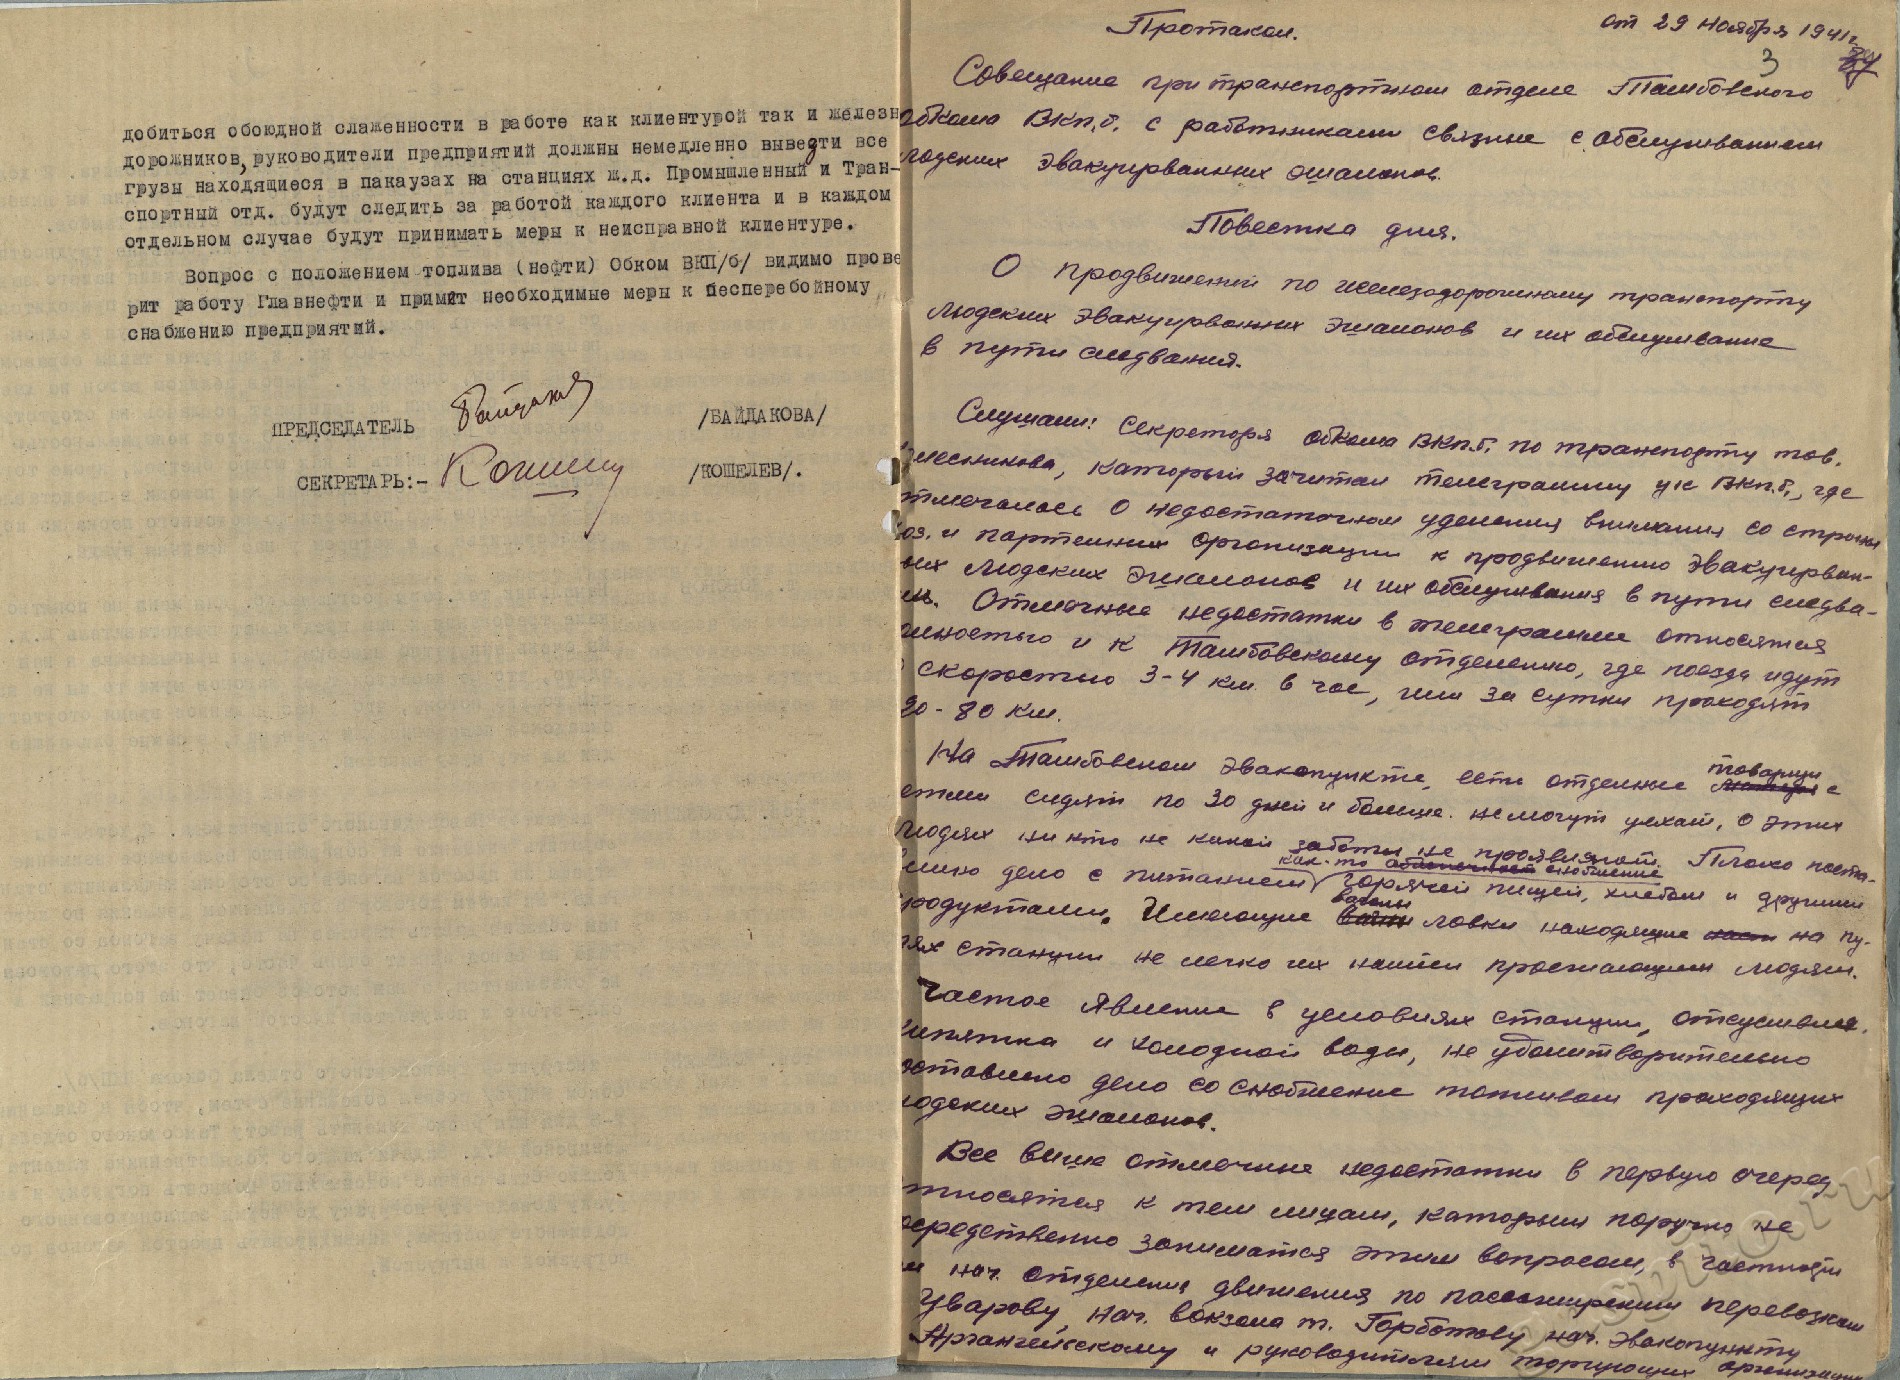 добиться обоюдной слаженности в работе как клиентурой так и железн
дорожников, руководители предприятий должны немедленно вывезти все
грузы находящиеся в пакаузах на станциях ж.д. Промышленный и Тран-
спортный отд. будут следить за работой каждого клиента и в каждом
отдельном случае будут принимать меры к неисправной клиентуре.
Вопрос с положением топлива (нефти) Обком ВКП/б/ видимо прове
рит работу Главнефти и примит необходимые меры к бесперебойному
снабжению предприятий.
ПРЕДСЕДАТЕЛЬ /БАЙДАКОВА/
СЕКРЕТАРЬ:- /КОШЕЛЕВ/.
Протакол. от 29 ноября 1941г.
3
Совещание при транспортном отделе Тамбовского
обкома ВКп.б. с работниками связные с обслуживанием
людских эвакуированных эшалонов.
Повестка дня.
О продвижений по железодорожному транспорту
людских эвакуированных эшалонов и их обслуживание
в пути следвания.
Слушали: Секретаря обкома ВКп.б. по транспорту тов.
лесникова, каторый зачитал телеграмму цк ВКп.б., где
тмечалось о недостаточном уделения внимания со стороны
хоз. и партейных организации к продвижению эвакуирван-
ных людских эшалонов и их обслуживания в пути следва-
ия. Отмечные недостатки в телеграмме относятся
олностью и к Тамбовскому отделению, где поезда идут
скоростью 3-4 км. в час, или за сутки проходят
-80 км.
На Тамбовском эвакопункте, есть отдельные товарищи с
етми сидят по 30 дней и больше. не могут уехат, о этих
людях ни кто не какой заботы не проявляют. Плохо постав-
лено дело с питанием как-то снобжение горячей пищей, хлебом и другими
продуктами. Имеющие ловки находящие на пу-
тях станции не легко их найти проежающим людям.
Частое явление в условиях станции, отсуствие
кипятка и холодной воды, не удолитворительно
оставлено дело со снобжение топливом проходящих
людских эшалонов.
Все выше отмечные недостатки в первую очеред
тносятся к тем лицам, каторым поручно не
осредственно заниматся этим вопросом, в частности
нач. отделения движения по пассажирским перевозкам
Уварову, нач. вокзала т. Горбатову нач. эвакопункту
Архангейскому и руководителям торгующих организации